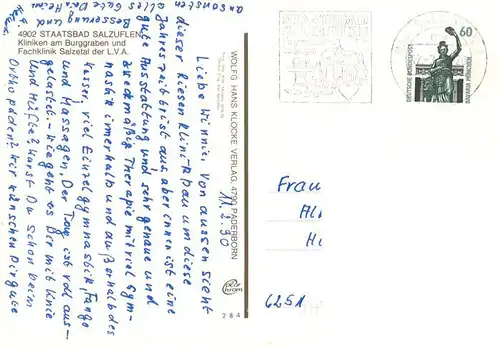 4902 STAATSBAD SALZUFLEN
Kliniken am Burggraben und
Fachklinik Salzetal der L.V.A.
Liebe Winnie. Von aussen sieht
dieser Riesen Klinikbau um diese
Jahreszeit trist aus, aber innen ist eine
gute Ausstattung und sehr genaue und
zweckmäßig Therapie mit viel Gym-
nastik innerhalb und außerhalb des
Wasser, viel Einzelgymnastik, Fango
und Massagen. Der Tag ist voll aus-
gelastet. Wie geht es Dir mit Knie
und Hüfte? Warst Du schon beim
Orthopäden? Wir wünschen Dir gute
Besserung und
ansonsten
alles Gute
11.2.90
WOLFG. HANS KLOCKE VERLAG, 4790 PADERBORN
284
60
DEUTSCHE BUNDESPOST
BAVARIA MÜNCHEN
Frau
6251